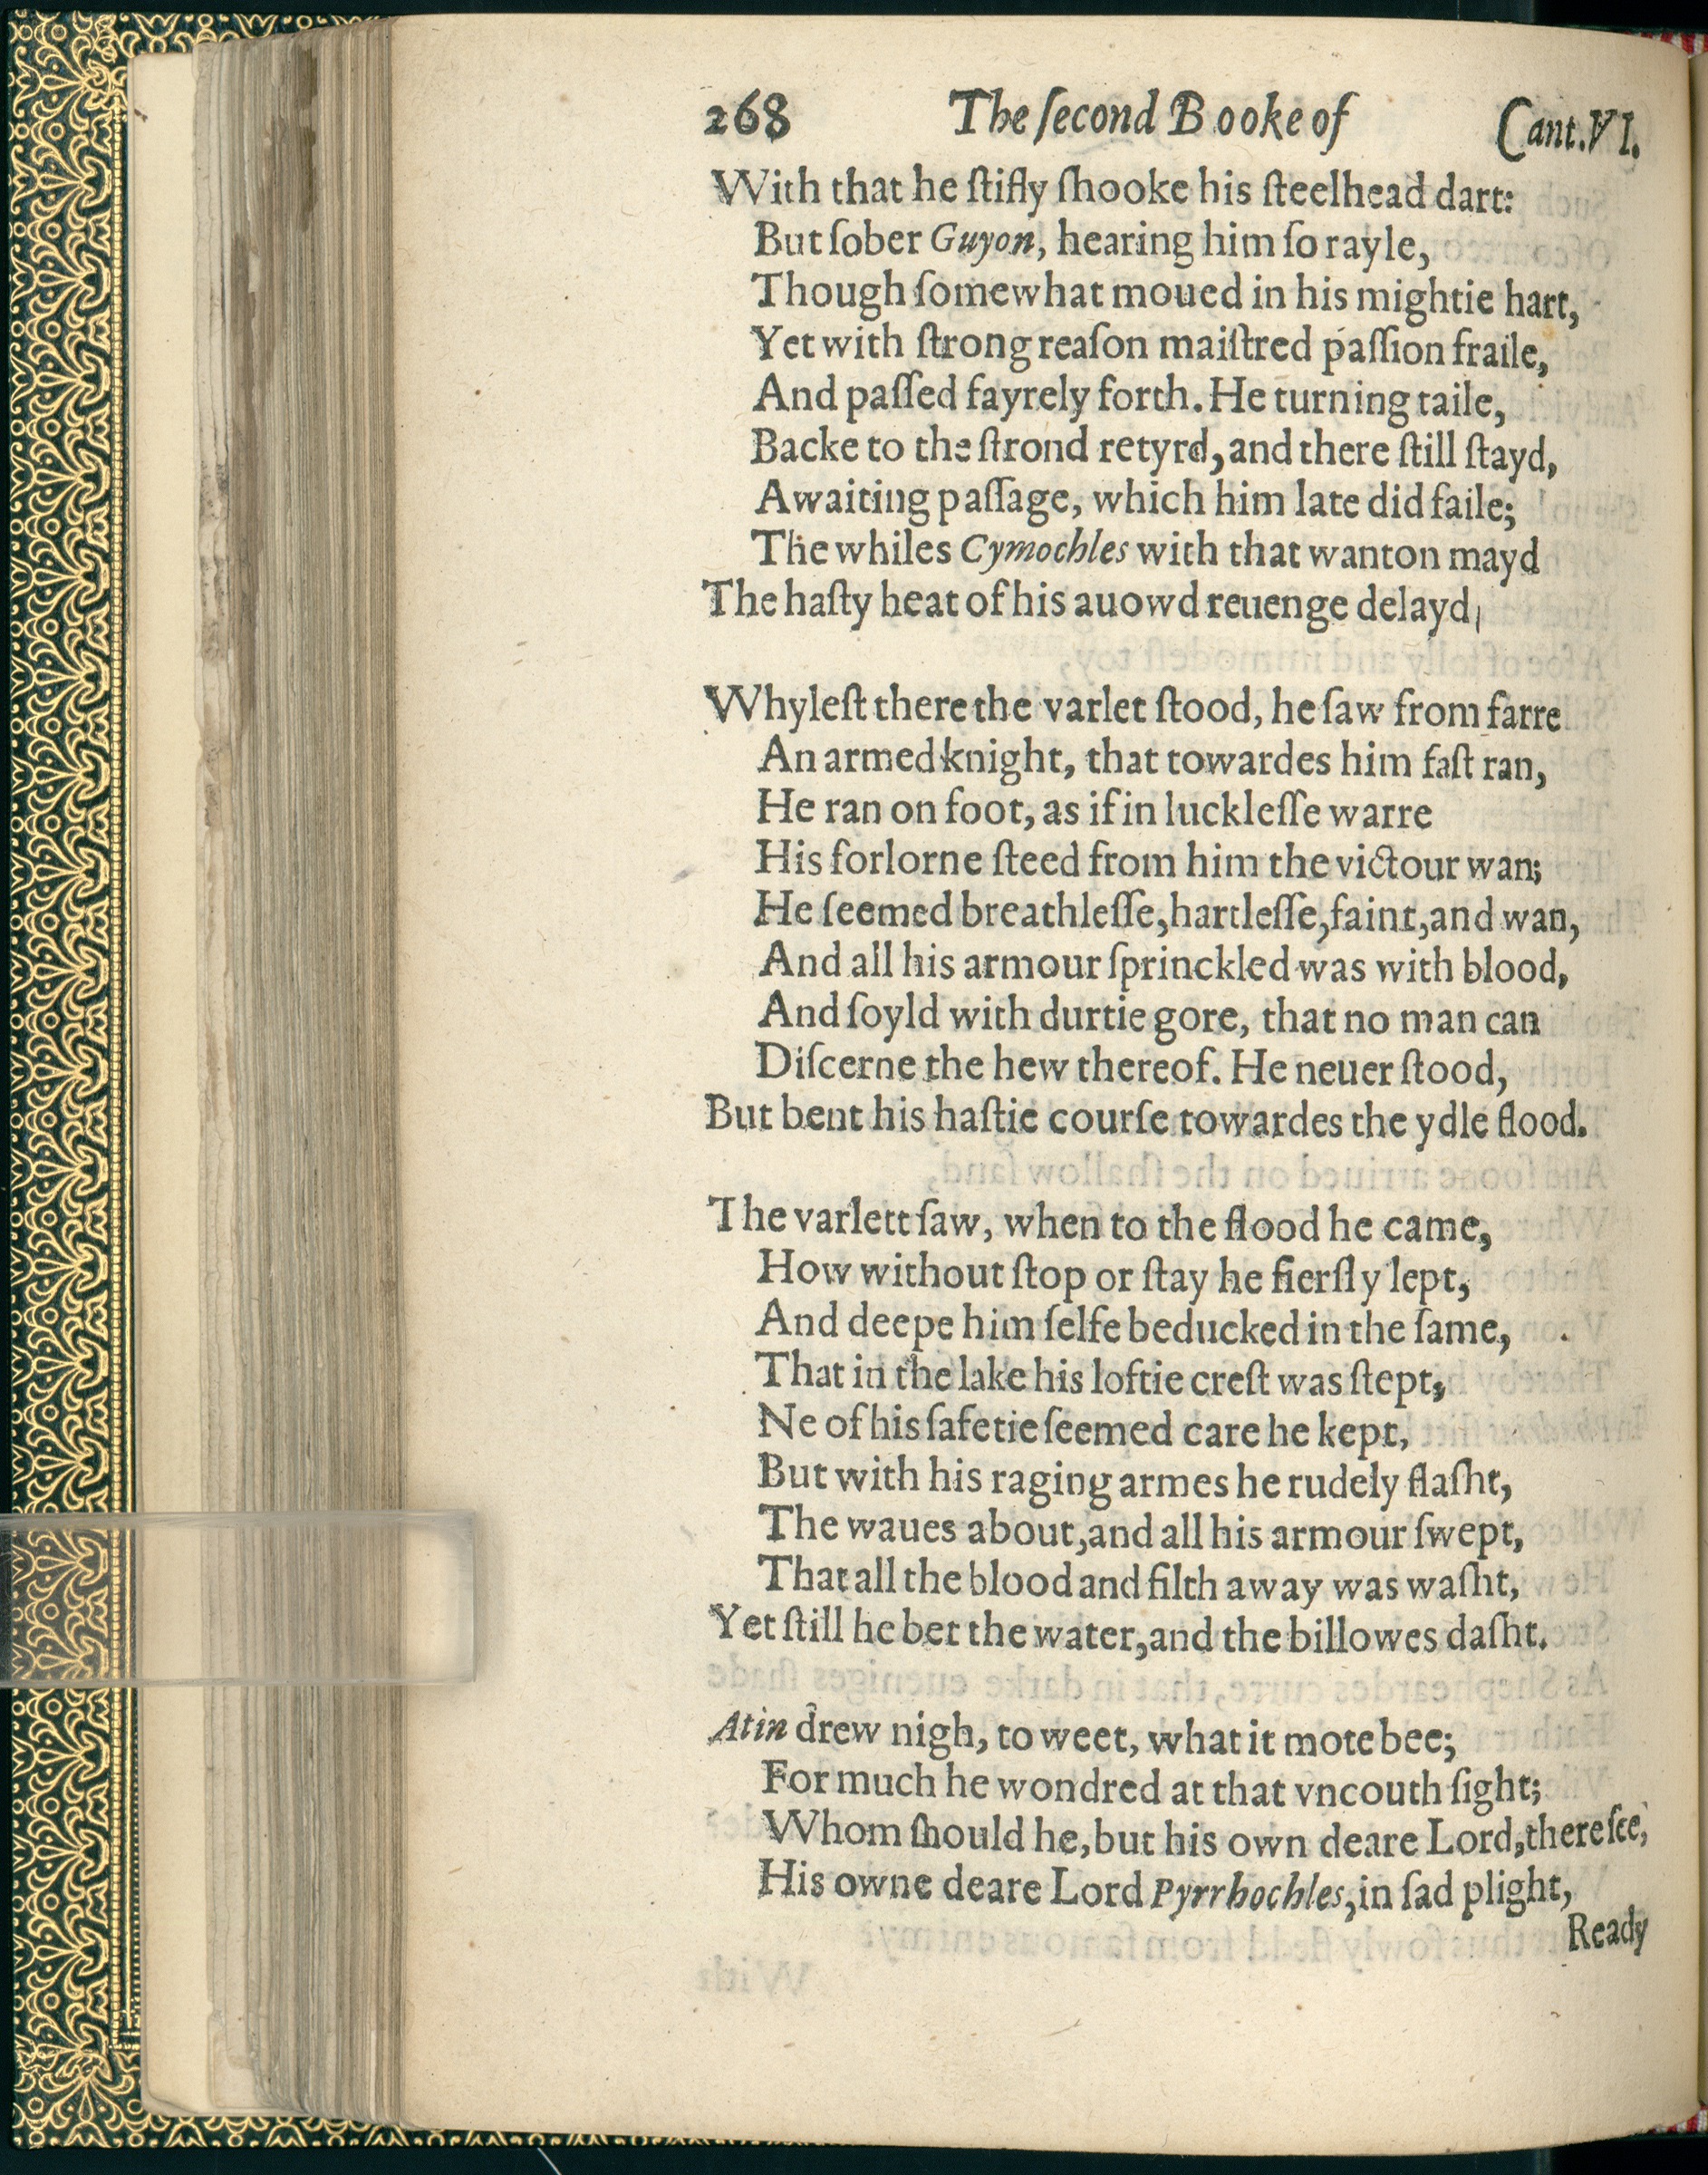 268 The ſecond Booke of Cant.VI.
With that he ſtifly ſhooke his ſteelhead dart:
But ſober Guyon, hearing him ſo rayle,
Though ſomewhat moued in his mightie hart,
Yet with ſtrong reaſon maiſtred paſſion fraile,
And paſſed fayrely forth. He turning taile,
Backe to the ſtrond retyrd, and there ſtill ſtayd,
Awaiting paſſage, which him late did faile;
The whiles Cymochles with that wanton mayd
The haſty heat of his auowd reuenge delayd,

Whyleſt there the varlet ſtood, he ſaw from farre
An armed knight, that towardes him faſt ran,
He ran on foot, as if in luckleſſe warre
His forlorne ſteed from him the victour wan;
He ſeemed breathleſſe, hartleſſe, faint, and wan,
And all his armour ſprinckled was with blood,
And ſoyld with durtie gore, that no man can
Diſcerne the hew thereof. He neuer ſtood,
But bent his haſtie courſe towardes the ydle flood.

The varlett ſaw, when to the flood he came,
How without ſtop or ſtay he fierſly lept,
And deepe him ſelfe beducked in the ſame,
That in the lake his loftie creſt was ſtept,
Ne of his ſafetie ſeemed care he kept,
But with his raging armes he rudely flaſht,
The waues about, and all his armour ſwept,
That all the blood and filth away was waſht,
Yet ſtill he bet the water, and the billowes daſht.

Atin drew nigh, to weet, what it mote bee;
For much he wondred at that vncouth ſight;
Whom ſhould he, but his own deare Lord, there ſee,
His owne deare Lord Pyrrhochles, in ſad plight,
Ready